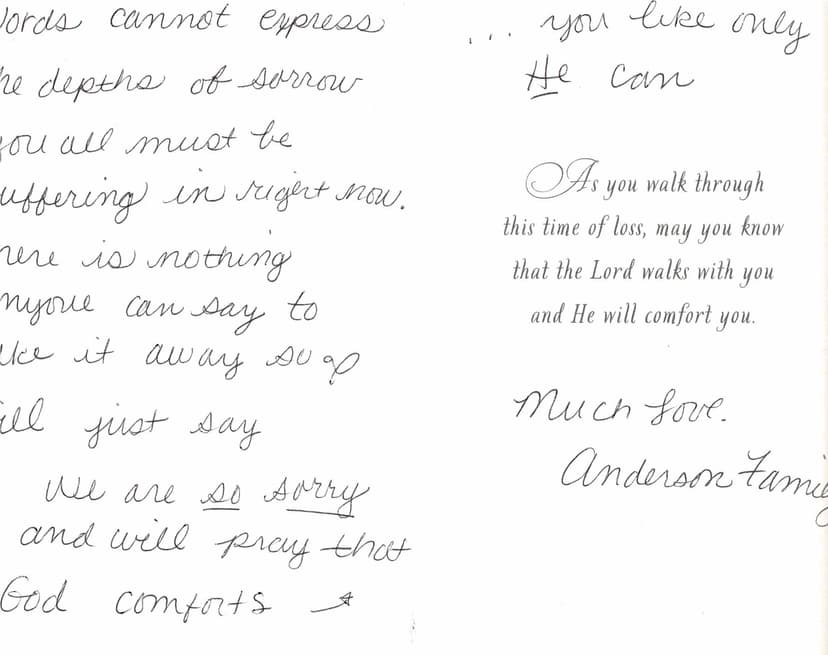 Words cannot express
the depths of sorrow
you all must be
suffering in right now.
There is nothing
anyone can say to
take it away so I
will just say
We are so sorry
and will pray that
God comforts →
... you like only
He can
As you walk through
this time of loss, may you know
that the Lord walks with you
and He will comfort you.
Much Love.
Anderson Family